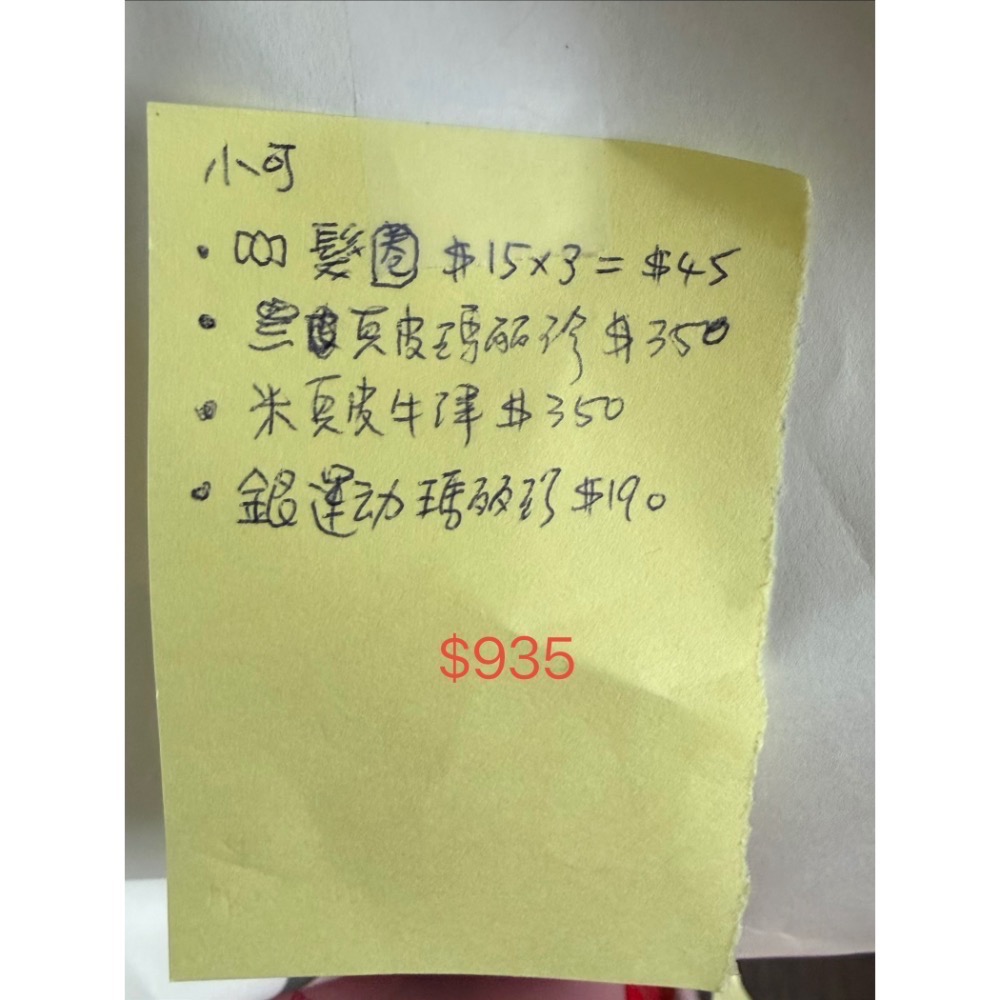 小可
髮圈 $15×3=$45
黑真皮瑪麗珍 $350
米真皮牛津 $350
銀運动瑪麗珍 $190
$935